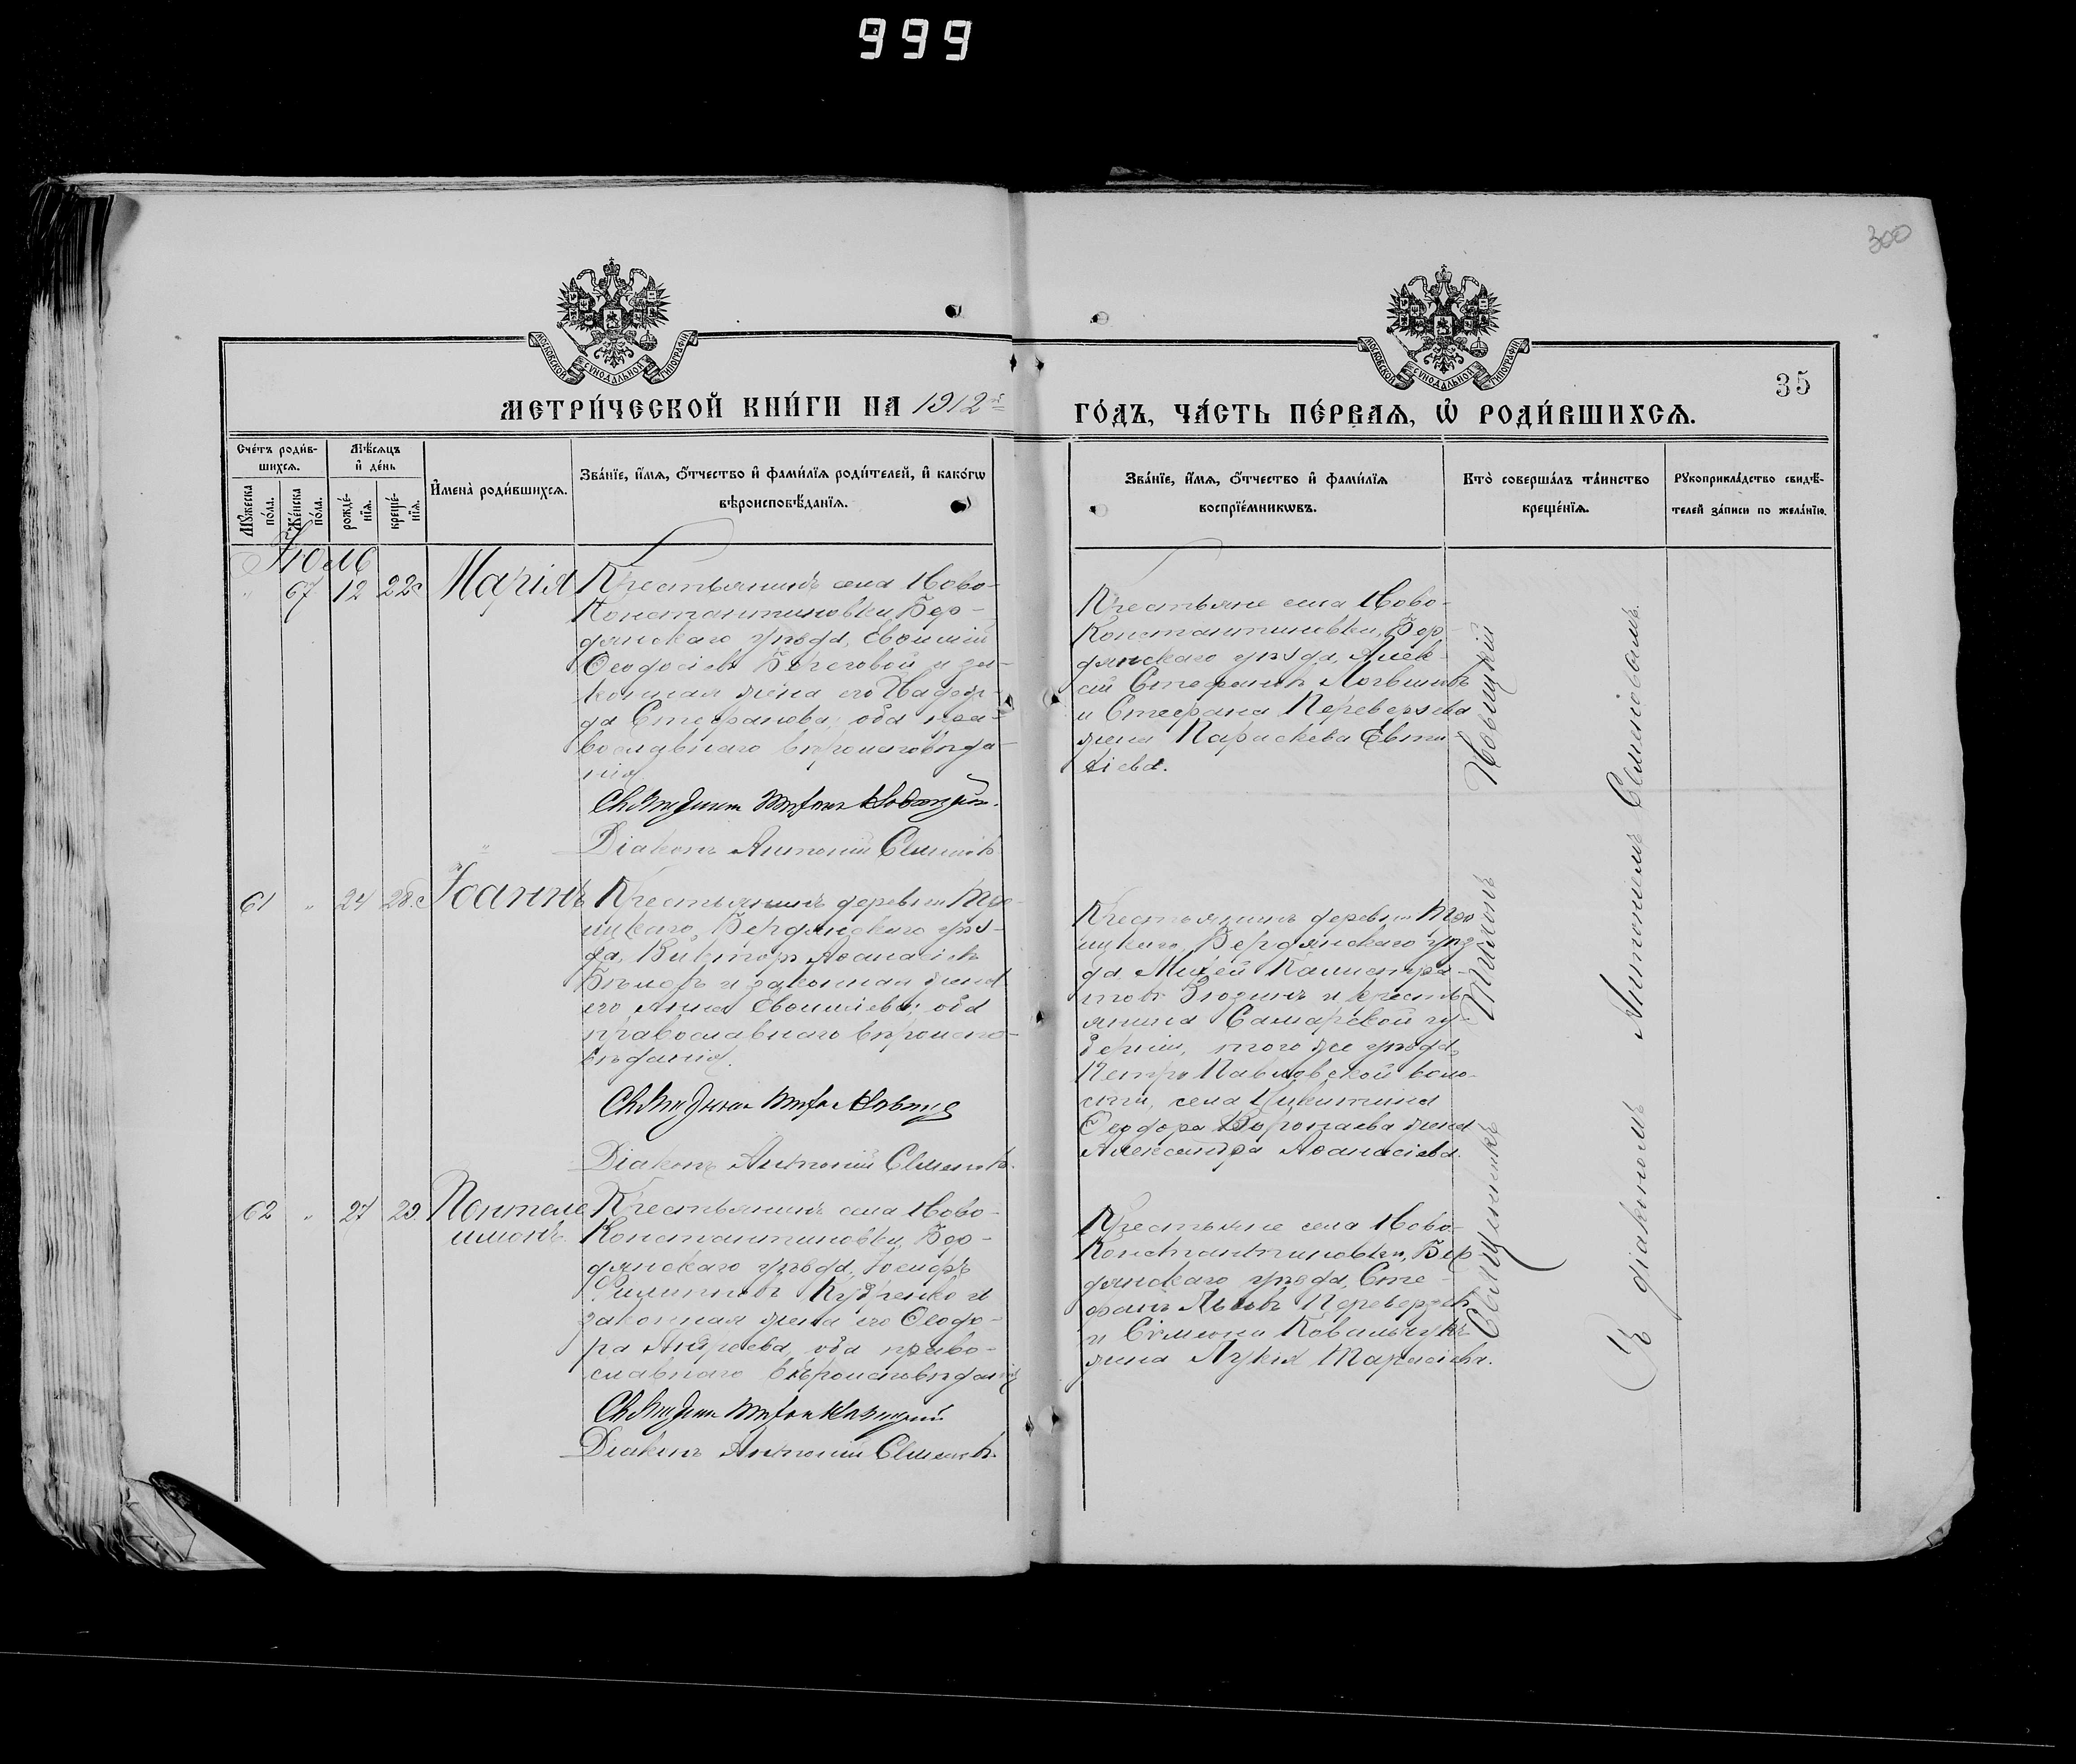 999
300
МОСКОВСКОЙ СУНОДАЛЬНОЙ ТИПОГРАФІИ
МОСКОВСКОЙ СУНОДАЛЬНОЙ ТИПОГРАФІИ
35
МЕТРИ́ЧЕСКОЙ КНИ́ГИ НА 1912й
ГО́ДЪ, ЧА́СТЬ ПЕ́РВАѦ, Ѡ҆ РОДИ́ВШИХСѦ.
Сче́тъ роди́в-
шихсѧ.
Мѣ́сѧцъ
и҆ де́нь
Мꙋ́жеска
по́ла.
Же́нска
по́ла.
рожде́-
нїѧ.
креще́-
нїѧ.
И҆мена̀ роди́вшихсѧ.
Зва́нїе, и҆́мѧ, ѻ҆́тчество и҆ фами́лїѧ роди́телей, и҆ како́гѡ
вѣроисповѣ́данїѧ.
Зва́нїе, и҆́мѧ, ѻ҆́тчество и҆ фами́лїѧ
воспрїе́мникѡвъ.
Кто̀ соверша́лъ та́инство
креще́нїѧ.
Рꙋкоприкла́дство свидѣ́-
телей за́писи по жела́нїю.
Іюль
" 67 12 22 Марія
Крестьянинъ села Ново-
Константиновки, Бер-
дянскаго уѣзда, Евѳимій
Ѳеодосіевъ Береговой и за-
конная жена его Надеж-
да Стефанова; оба пра-
вославнаго вѣроисповѣда-
нія
Священник Новицкій.
Діаконъ Антоній Семенов
Крестьяне села Ново-
Константиновки, Бер-
дянскаго уѣзда, Алек-
сій Стефановъ
и Стефана Переверзева
жена Параскева
61 " 24 28 Іоаннъ
Крестьянинъ деревни Тро-
ицкаго, Бердянскаго уѣз-
да, Викторъ Аѳанасіевъ
и законная жена
его Анна Евѳиміева; оба
православнаго вѣроиспо-
вѣданія.
Священник
Діаконъ Антоній Семенов.
Крестьянинъ деревни Тро-
ицкаго, Бердянскаго уѣз-
да Михей Каллистра-
товъ и крестья-
янина Самарской гу-
берніи, того же уѣзда,
Петро Павловской воло-
сти, села Никитина
Ѳеодора жена
Александра Аѳанасіева.
62 " 27 29 Пантеле
имонъ.
Крестьянинъ села Ново-
Константиновки, Бер-
дянскаго уѣзда, Іосифъ
Филипповъ Кубченко и
законная жена его Ѳеодо-
ра Андреева, оба право-
славнаго вѣроисповѣданія
Священник
Діаконъ Антоній Семенов.
Крестьяне села Ново-
Константиновки, Бер-
дянскаго уѣзда, Сте-
фанъ Переверзев
и Симеона Ковальчукъ
жена Лукія Тарасіева.
Священникъ Новицкій
діакономъ Антоніемъ Семеновымъ.